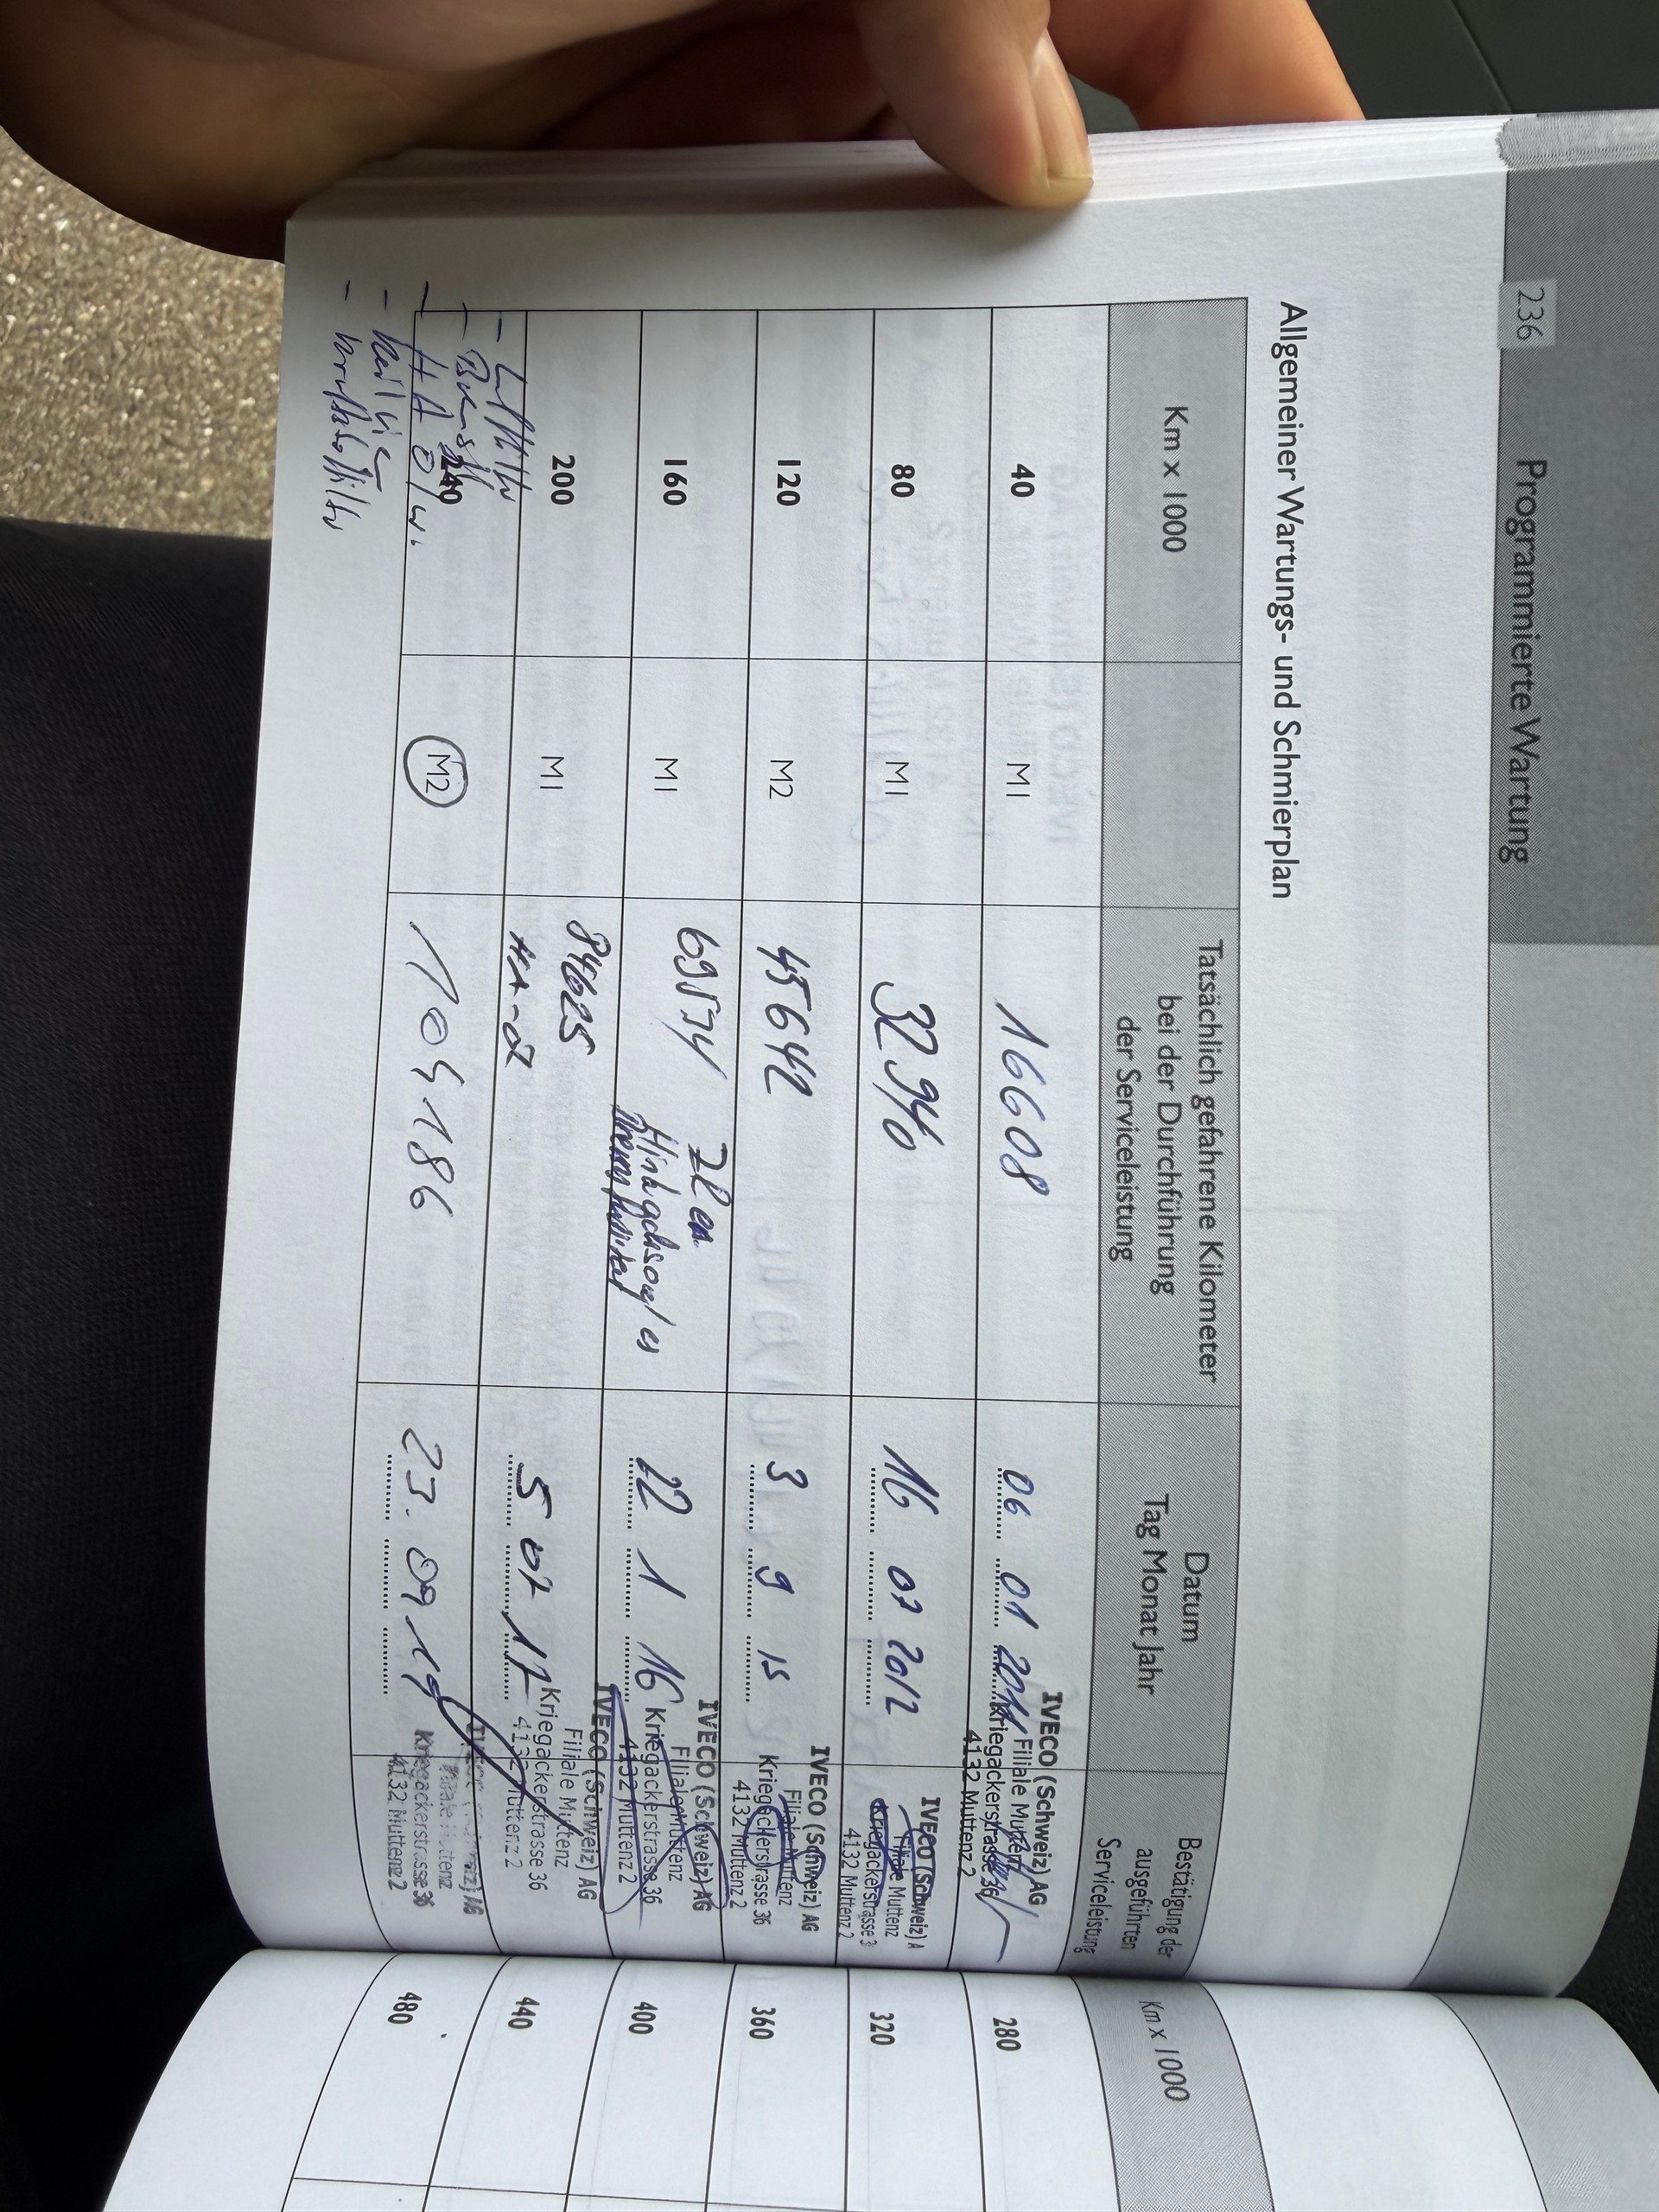 236
Programmierte Wartung
Allgemeiner Wartungs- und Schmierplan
Km x 1000
Tatsächlich gefahrene Kilometer
bei der Durchführung
der Serviceleistung
Datum
Tag Monat Jahr
Bestätigung der
ausgeführten
Serviceleistung
40 M1 16608 06 01 IVECO (Schweiz) AG
Filiale Muttenz
Kriegackerstrasse 36
4132 Muttenz 2
80 M1 32940 16 03 2012 IVECO (Schweiz) A
Filiale Muttenz
Kriegackerstrasse 3
4132 Muttenz 2
120 M2 45642 3 9 15 IVECO (Schweiz) AG
Filiale Muttenz
Kriegackerstrasse 36
4132 Muttenz 2
160 M1 22 1 16 IVECO (Schweiz) AG
Filiale Muttenz
Kriegackerstrasse 36
4132 Muttenz 2
200 M1 84625 5 07 17 IVECO (Schweiz) AG
Filiale Muttenz
Kriegackerstrasse 36
4132 Muttenz 2
240 M2 104186 23. 09 19
Kriegackerstrasse 36
4132 Muttenz 2
Km x 1000
280
320
360
400
440
480